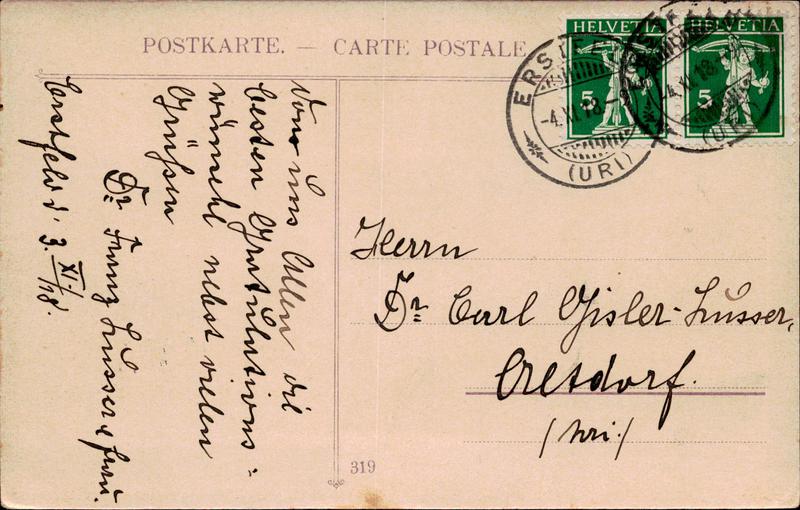 POSTKARTE. — CARTE POSTALE
HELVETIA
5
HELVETIA
5
ERSTFELD
-4.XI.18.-
(URI)
-4.XI.18.-
(URI)
Von uns Allen die
besten Gratulations=
wünsche nebst vielen
Grüßen
Dr. Franz Lusser & Frau.
Erstfeld d. 3. XI./18.
Herrn
Dr. Carl Gisler-Lusser,
Altdorf.
/Uri/
319